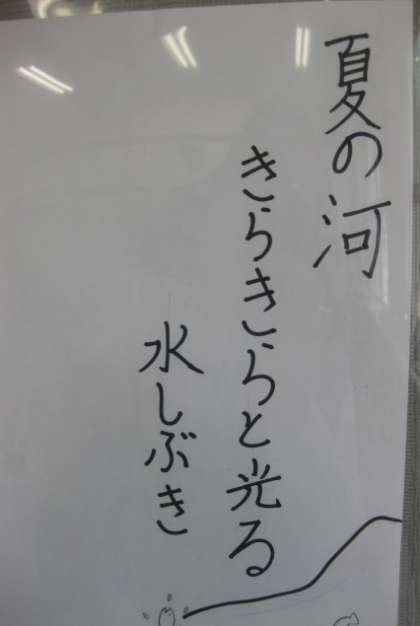 夏の河
きらきらと光る
水しぶき